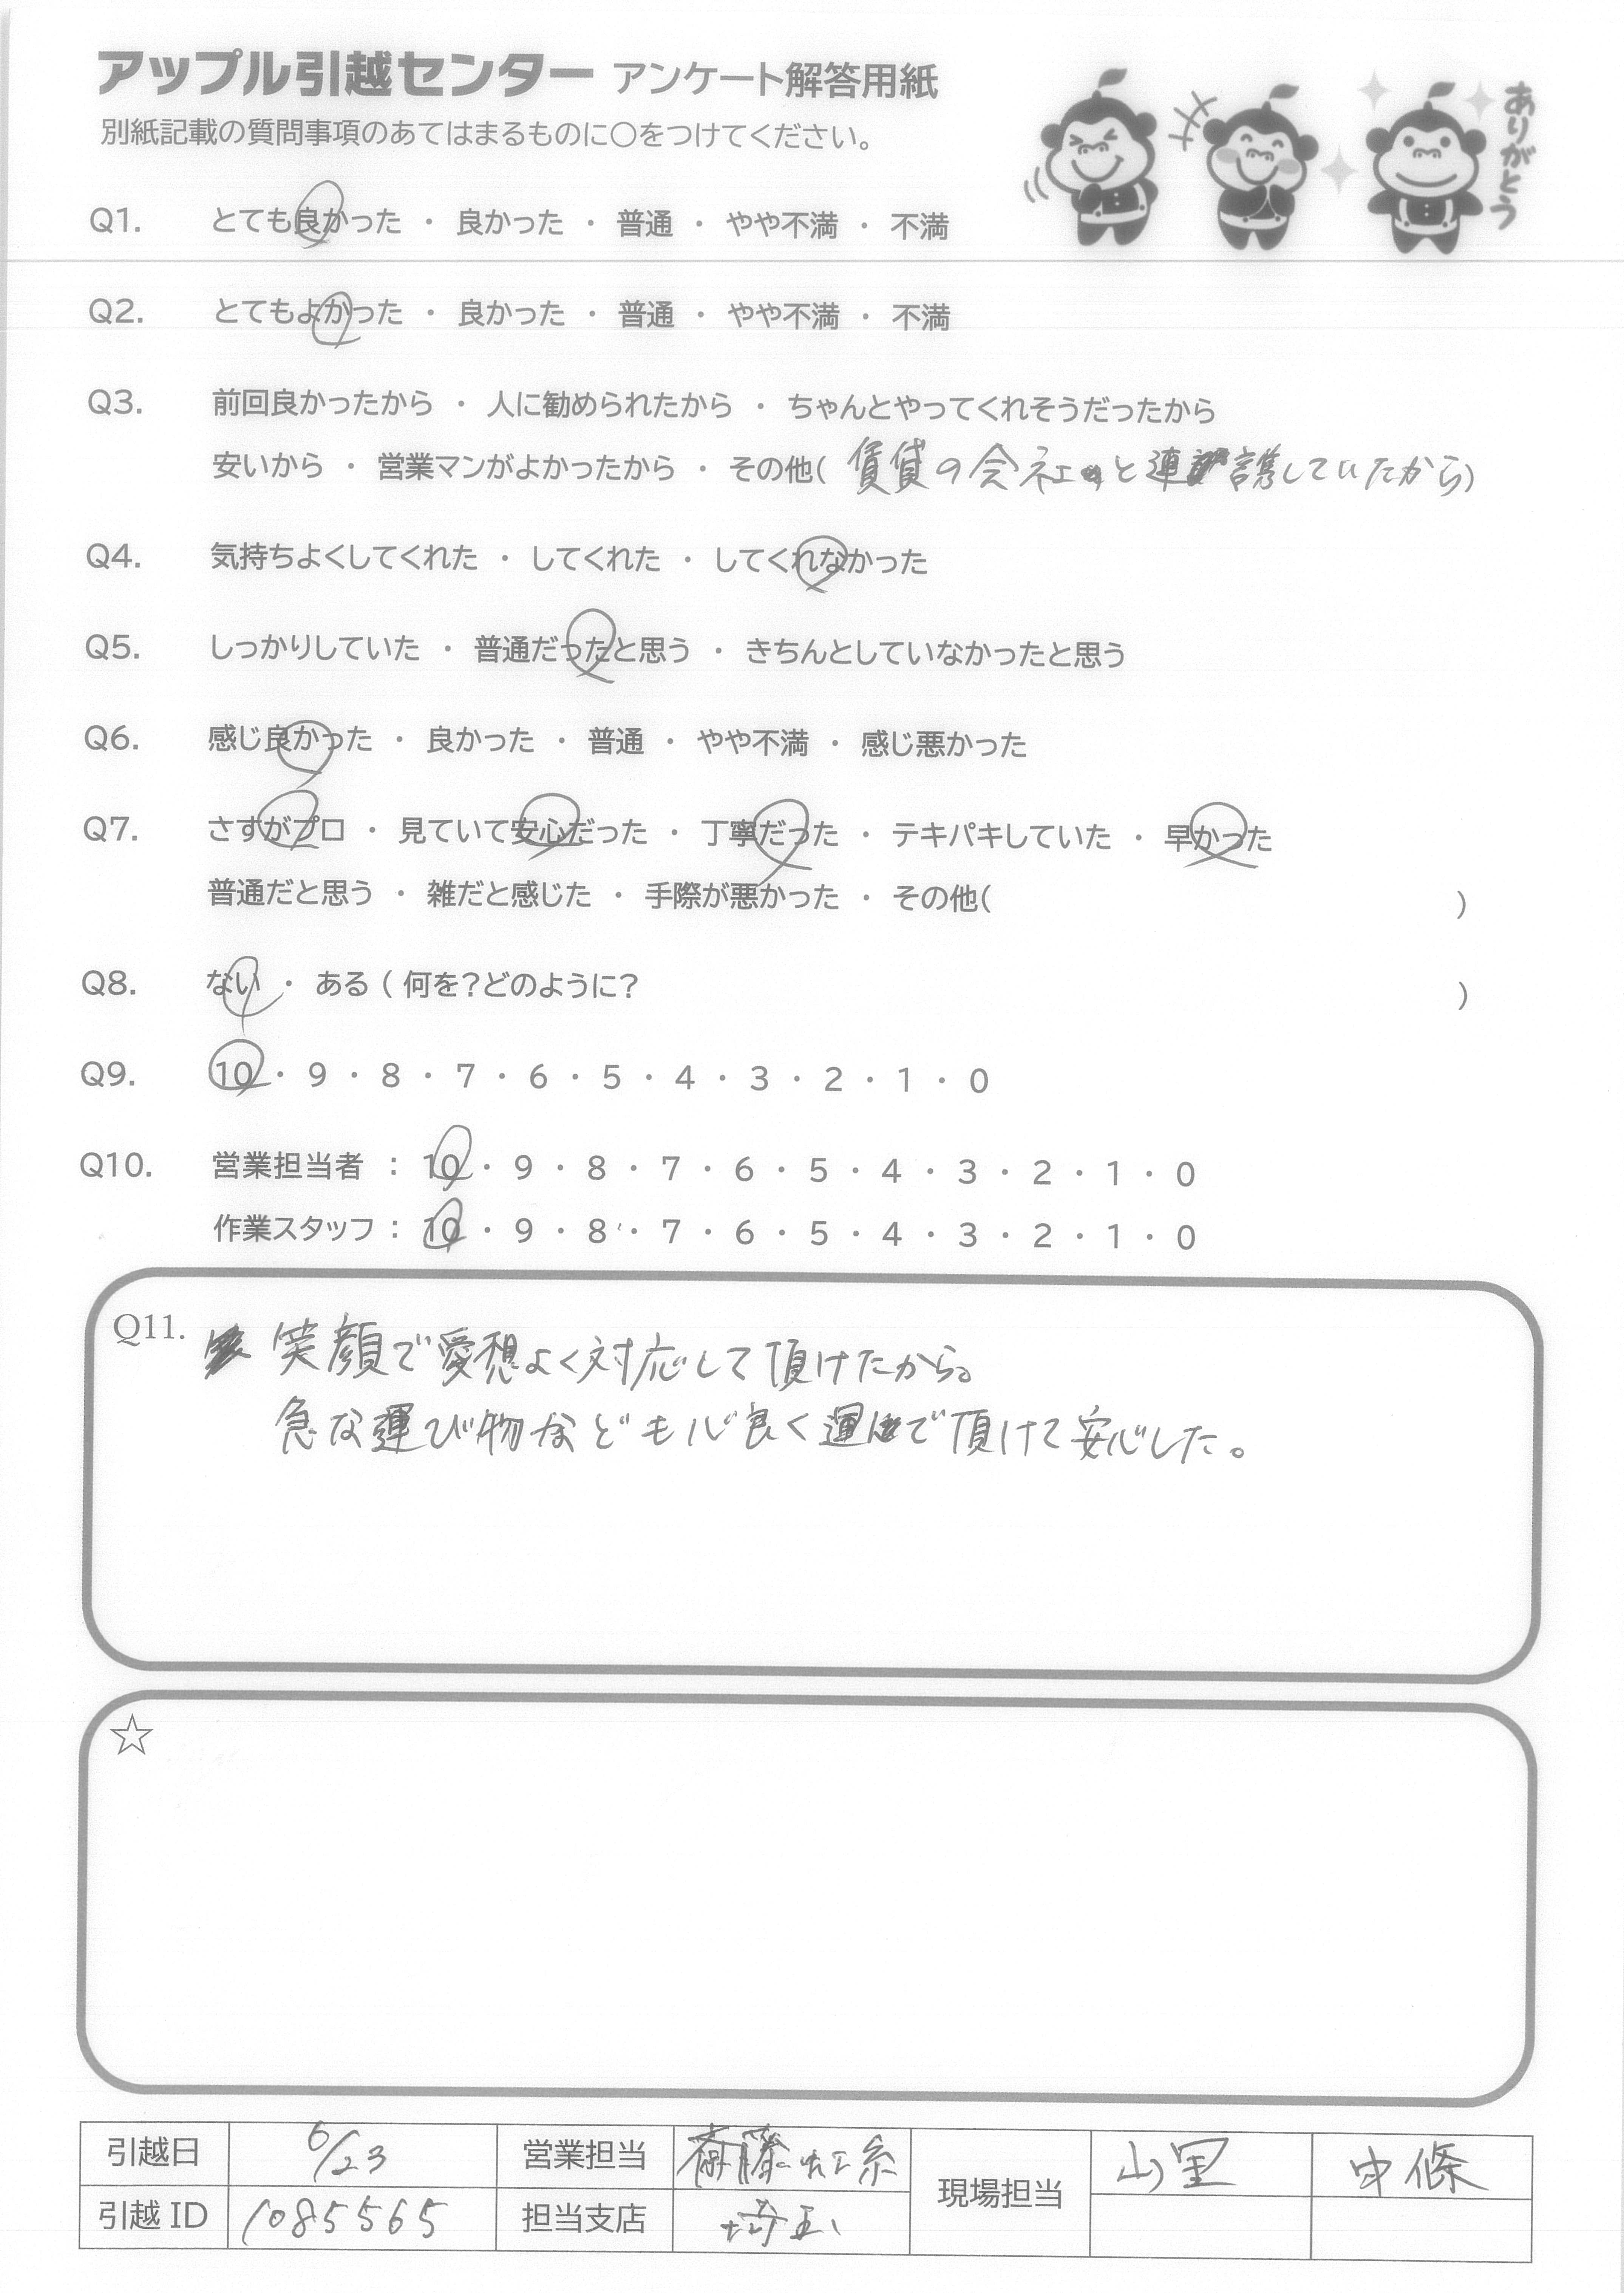 アップル引越センター アンケート解答用紙
別紙記載の質問事項のあてはまるものに〇をつけてください。
ありがとう
Q1. とても良かった ・ 良かった ・ 普通 ・ やや不満 ・ 不満
Q2. とてもよかった ・ 良かった ・ 普通 ・ やや不満 ・ 不満
Q3. 前回良かったから ・ 人に勧められたから ・ ちゃんとやってくれそうだったから
安いから ・ 営業マンがよかったから ・ その他( 賃貸の会社と連携していたから)
Q4. 気持ちよくしてくれた ・ してくれた ・ してくれなかった
Q5. しっかりしていた ・ 普通だったと思う ・ きちんとしていなかったと思う
Q6. 感じ良かった ・ 良かった ・ 普通 ・ やや不満 ・ 感じ悪かった
Q7. さすがプロ ・ 見ていて安心だった ・ 丁寧だった ・ テキパキしていた ・ 早かった
普通だと思う ・ 雑だと感じた ・ 手際が悪かった ・ その他( )
Q8. ない ・ ある ( 何を?どのように? )
Q9. 10 ・ 9 ・ 8 ・ 7 ・ 6 ・ 5 ・ 4 ・ 3 ・ 2 ・ 1 ・ 0
Q10. 営業担当者 : 10 ・ 9 ・ 8 ・ 7 ・ 6 ・ 5 ・ 4 ・ 3 ・ 2 ・ 1 ・ 0
作業スタッフ : 10 ・ 9 ・ 8 ・ 7 ・ 6 ・ 5 ・ 4 ・ 3 ・ 2 ・ 1 ・ 0
Q11. 笑顔で愛想よく対応して頂けたから。
急な運び物なども心良く運んで頂けて安心した。
☆
引越日 6/23 営業担当 齋藤 現場担当 山里 中條
引越 ID 1085565 担当支店 埼玉